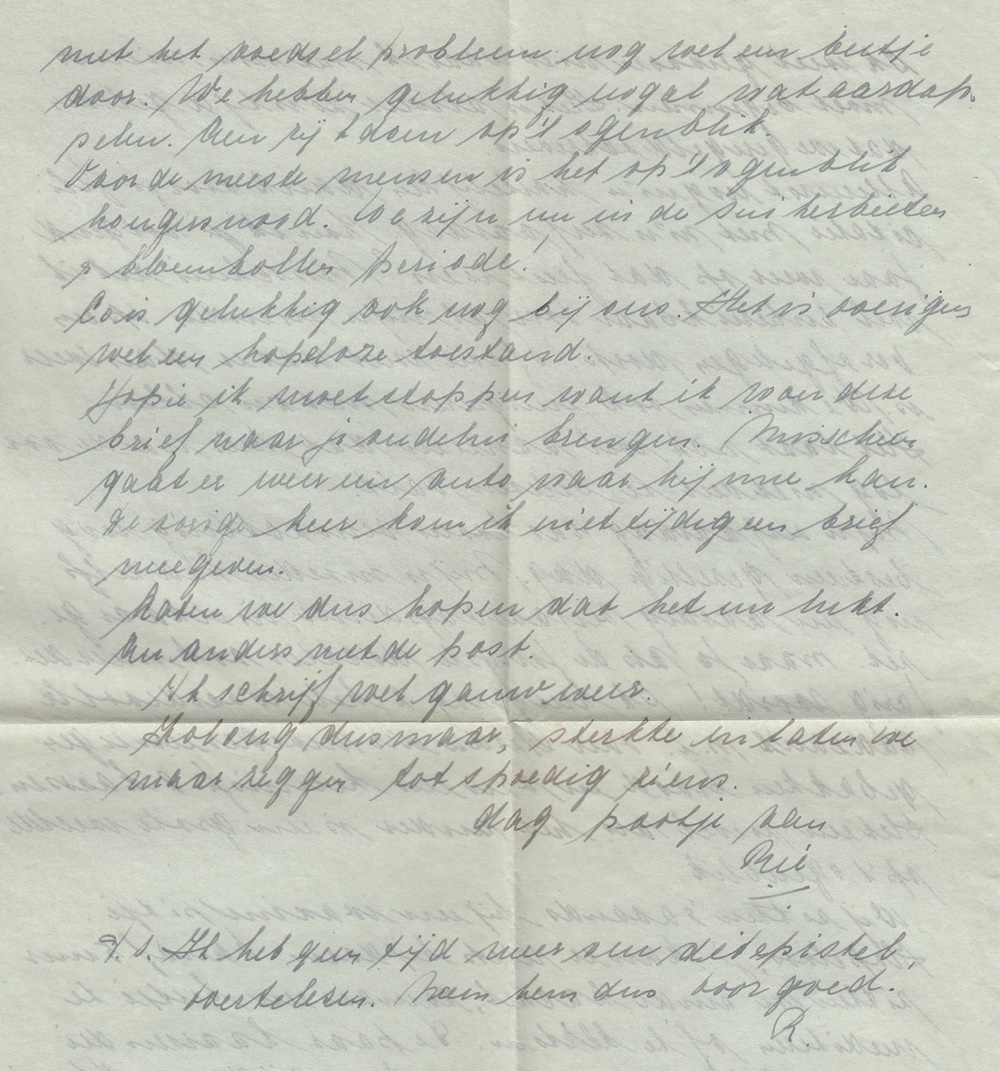 met het voedsel probleem nog wel een beetje
door. We hebben gelukkig nogal wat aardap-
pelen. Aen zij t doen op 't ogenblik.
Voor de meeste mensen is het op 't ogenblik
hongersnood. We zijn nu in de suikerbieten
& bloembollen periode!
Co is gelukkig ook nog bij ons. Het is overigens
wel een hopeloze toestand.
Jopie ik moet stoppen want ik wou deze
brief naar je ouders brengen. Misschien
gaat er weer een auto waar hij mee kan.
De vorige keer kon ik niet tijdig een brief
meegeven.
Laten we dus hopen dat het nu lukt.
En anders met de post.
Ik schrijf wel gauw weer.
Zolang dus maar, sterkte en laten we
maar zeggen tot spoedig ziens.
dag pootje van
Rié
P.S. Ik heb geen tijd meer om dit epistel,
over te lezen. Neem hem dus voor goed.
R.